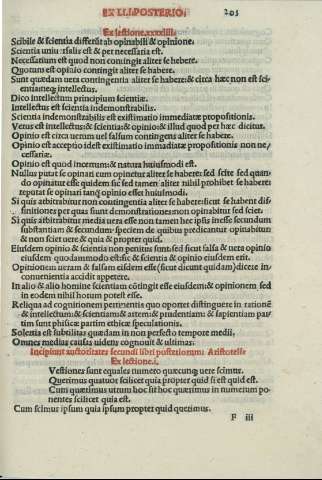 EX LI.I.POSTERIO. 203
Ex lectione.xxxxiiii.
Scibile & scientia differūt ab opinabili & opinione.
Scientia uniuersalis est & per necessaria est.
Necessarium est quod non contingit aliter se habere.
Quorum est opinio contingit aliter se habere.
Sunt quædam uera contingentia aliter se habere: & circa hæc non est sci-
entia neq; intellectus.
Dico intellectum principium scientiæ.
Intellectus est scientia indemonstrabilis.
Scientia indemonstrabilis est existimatio immediatæ propositionis.
Verus est intellectus: & scientia: & opinio: & illud quod per hæc dicitur.
Opinio est circa uerum uel falsum contingens aliter se habere.
Opinio est acceptio idest existimatio immediatæ propositionis non ne-
cessariæ.
Opinio est quod incertum: & natura huiusmodi est.
Nullus putat se opinari cum opinetur aliter se habere: sed scire sed quan-
do opinatur esse quidem sic sed tamen aliter nihil prohibet se habere:
reputat se opinari tanq̄ opinio esset huiusmodi.
Si quis arbitrabitur non contingentia aliter se habere: sicut se habent dif-
finitiones per quas sunt demonstrationes non opinabitur sed sciet.
Si quis arbitrabitur media uera esse non tamen hec ipsis inesse secundum
substantiam & secundum speciem de quibus predicantur opinabitur:
& non sciet uere & quia & propter quid.
Eiusdem opinio & scientia non penitus sunt: sed sicut falsa & uera opinio
eiusdem quodammodo est: sic & scientia & opinio eiusdem erit.
Opinionem ueram & falsam eiusdem esse (sicut dicunt quidam) dicere in-
conuenientia accidit appetere.
In alio & alio homine scientiam cōtingit esse eiusdem & opinionem sed
in eodem nihil horum potest esse.
Reliqua ad cognitionem pertinentia quo oportet distinguere in rationē
& intellectum: & scientiam: & artem: & prudentiam: & sapientiam par-
tim sunt phisicæ partim ethicæ speculationis.
Solertia est subtilitas quædam in non perfecto tempore medii.
Omnes medias causas uidens cognouit & ultimas.
Incipiunt auctoritates secundi libri posteriorum Aristotelis
Ex lectione.i.
Vestiones sunt equales numero quæcunq; uere scimus.
Querimus quatuor scilicet quia propter quid si est quid est.
Cum quærimus utrum hoc sit hoc quærimus in numerum po-
nentes scilicet quia est.
Cum scimus ipsum quia ipsum propter quid querimus.
F iii